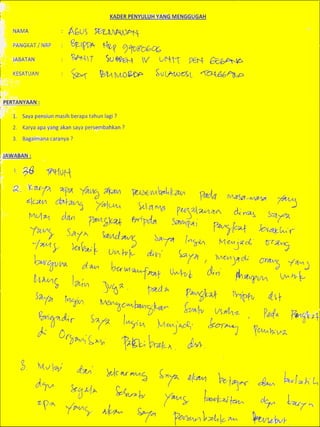 KADER PENYULUH YANG MENGGUGAH
NAMA : AGUS DERMAWAN
PANGKAT / NRP : BRIPDA NRP
JABATAN : BANIT SUBDEN IV UNIT DEN GEGANA
KESATUAN : SAT BRIMOBDA SULAWESI TENGGARA
PERTANYAAN :
1. Saya pensiun masih berapa tahun lagi ?
2. Karya apa yang akan saya persembahkan ?
3. Bagaimana caranya ?
JAWABAN :
1 38 TAHUN
2. Karya apa yang akan persembahkan pada masa-masa yang
akan datang yaitu selama perjalanan dinas saya
Mulai dari pangkat Bripda sampai pangkat terakhir
yang saya sandang saya ingin Menjadi orang
yang terbaik untuk diri saya, menjadi orang yang
berguna dan bermanfaat untuk diri Maupun untuk
orang lain juga. pada Pangkat Briptu dst
saya ingin Mengembangkan suatu usaha. Pada Pangkat
Brigadir saya ingin Menjadi seorang Pembina
di Organisasi Paskibraka. dst.
3 Mulai dari sekarang saya akan belajar dan berlatih
dgn segala sesuatu yang berkaitan dgn karya
apa yang akan saya persembahkan tersebut